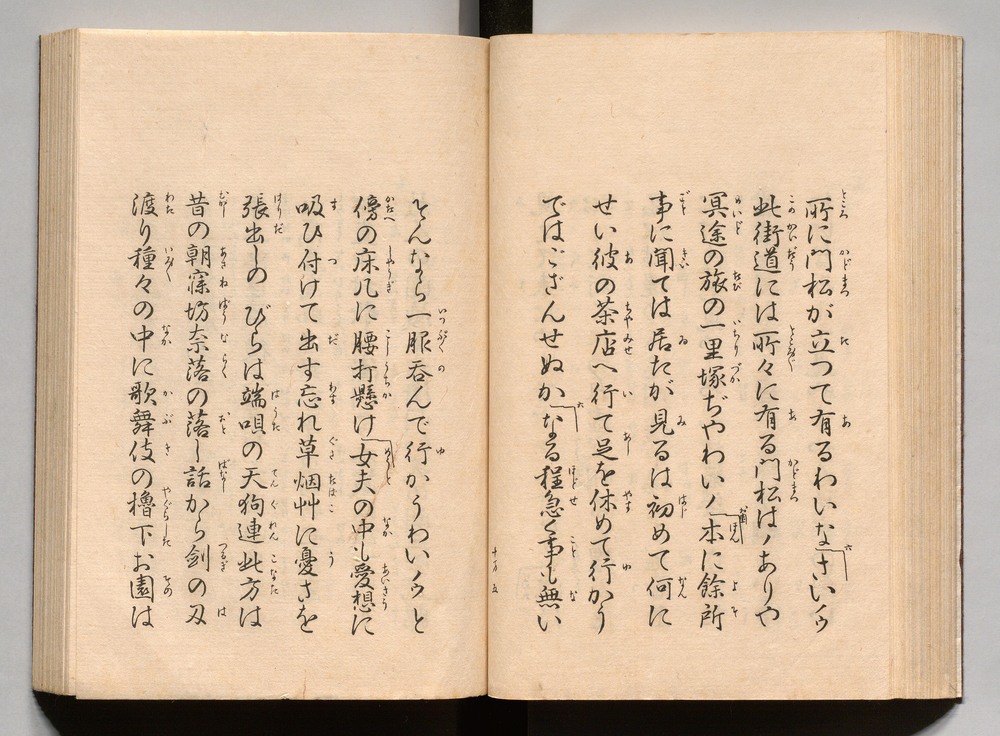 所に門松が立つて有るわいなさいノウ
此街道には所々に有る門松はノありや
冥途の旅の一里塚ぢやわいノ本に餘所
事に聞ては居たが見るは初めて何に
せい彼の茶店へ行て足を休めて行かう
ではござんせぬかなる程急く事も無い
そんなら一服呑んで行かうわいノウと
傍の床几に腰打懸け女夫の中も愛想に
吸ひ付けて出す忘れ草烟艸に憂さを
張出しの びらは端唄の天狗連此方は
昔の朝寐坊奈落の落し話から剣の刃
渡り種々の中に歌舞伎の櫓下お園は